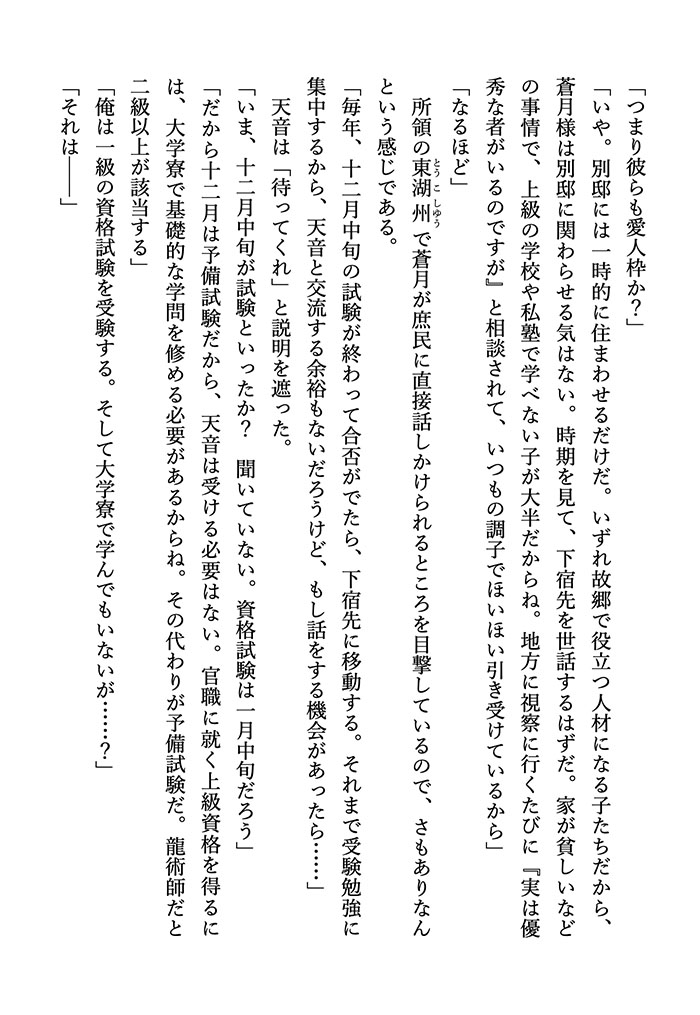 「つまり彼らも愛人枠か？」
「いや。別邸には一時的に住まわせるだけだ。いずれ故郷で役立つ人材になる子たちだから、
蒼月様は別邸に関わらせる気はない。時期を見て、下宿先を世話するはずだ。家が貧しいなど
の事情で、上級の学校や私塾で学べない子が大半だからね。地方に視察に行くたびに『実は優
秀な者がいるのですが』と相談されて、いつもの調子でほいほい引き受けているから」
「なるほど」
　所領の東湖州で蒼月が庶民に直接話しかけられるところを目撃しているので、さもありなん
という感じである。
「毎年、十二月中旬の試験が終わって合否がでたら、下宿先に移動する。それまで受験勉強に
集中するから、天音と交流する余裕もないだろうけど、もし話をする機会があったら……」
　天音は「待ってくれ」と説明を遮った。
「いま、十二月中旬が試験といったか？　聞いていない。資格試験は一月中旬だろう」
「だから十二月は予備試験だから、天音は受ける必要はない。官職に就く上級資格を得るに
は、大学寮で基礎的な学問を修める必要があるからね。その代わりが予備試験だ。龍術師だと
二級以上が該当する」
「俺は一級の資格試験を受験する。そして大学寮で学んでもいないが……？」
「それは――」
とうこしゆう